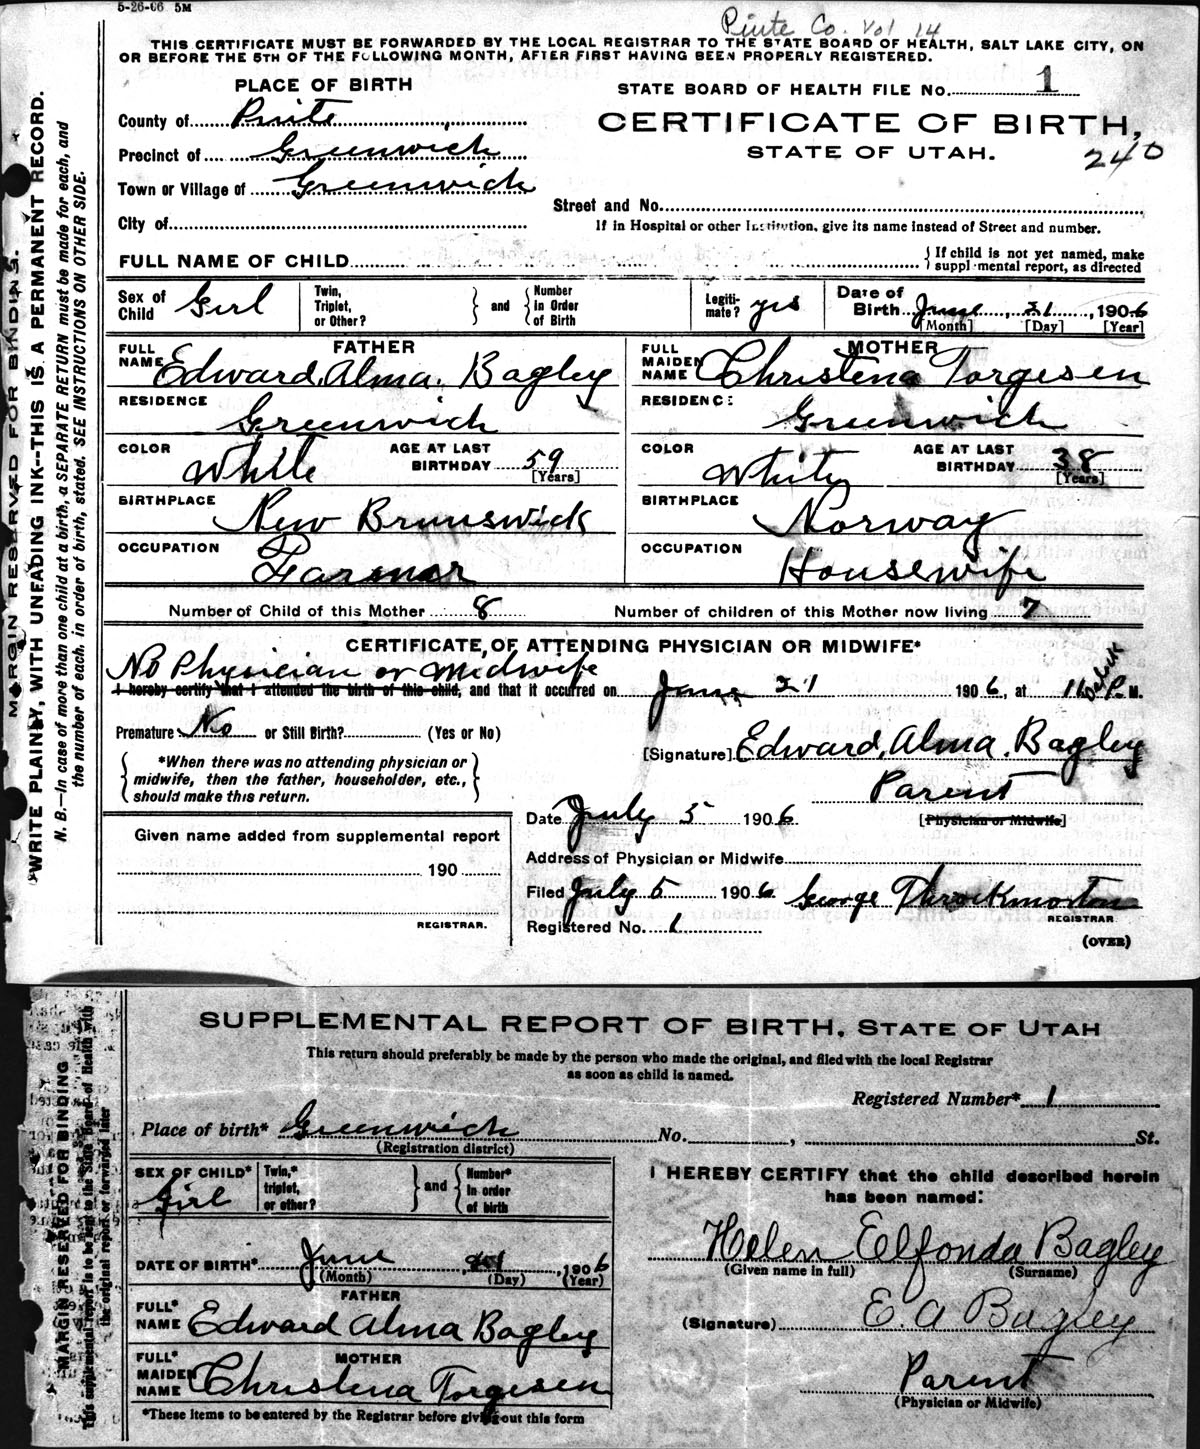 5-26-06 5M
Piute Co. Vol 14
THIS CERTIFICATE MUST BE FORWARDED BY THE LOCAL REGISTRAR TO THE STATE BOARD OF HEALTH, SALT LAKE CITY, ON
OR BEFORE THE 5TH OF THE FOLLOWING MONTH, AFTER FIRST HAVING BEEN PROPERLY REGISTERED.
PLACE OF BIRTH
STATE BOARD OF HEALTH FILE No. 1
County of Piute
CERTIFICATE OF BIRTH,
Precinct of Greenwich
STATE OF UTAH.
240
Town or Village of Greenwich
Street and No.
City of
If in Hospital or other Institution, give its name instead of Street and number.
FULL NAME OF CHILD
If child is not yet named, make
supplemental report, as directed
Sex of Child Girl
Twin, Triplet, or Other?
and
Number in Order of Birth
Legiti-mate? yes
Date of Birth June 21, 1906
[Month] [Day] [Year]
FATHER
MOTHER
FULL NAME Edward, Alma. Bagley
FULL MAIDEN NAME Christena Torgesen
RESIDENCE Greenwich
RESIDENCE Greenwich
COLOR White AGE AT LAST BIRTHDAY 59 [Years]
COLOR White AGE AT LAST BIRTHDAY 38 [Years]
BIRTHPLACE New Brunswick
BIRTHPLACE Norway
OCCUPATION Farmer
OCCUPATION Housewife
Number of Child of this Mother 8 Number of children of this Mother now living 7
CERTIFICATE OF ATTENDING PHYSICIAN OR MIDWIFE*
No Physician or Midwife
I hereby certify that I attended the birth of this child, and that it occurred on June 21 1906, at 11 Oclock P. M.
Premature No or Still Birth? (Yes or No)
[Signature] Edward, Alma. Bagley
*When there was no attending physician or
midwife, then the father, householder, etc.,
should make this return.
Parent
[Physician or Midwife]
Date July 5 1906
Given name added from supplemental report
190
REGISTRAR.
Address of Physician or Midwife
Filed July 5 1906 George Throckmorton
REGISTRAR
Registered No. 1
(OVER)
MARGIN RESERVED FOR BINDING.
WRITE PLAINLY, WITH UNFADING INK--THIS IS A PERMANENT RECORD.
N. B.—In case of more than one child at a birth, a SEPARATE RETURN must be made for each, and
the number of each, in order of birth, stated. SEE INSTRUCTIONS ON OTHER SIDE.
SUPPLEMENTAL REPORT OF BIRTH, STATE OF UTAH
This return should preferably be made by the person who made the original, and filed with the local Registrar
as soon as child is named.
Registered Number* 1
Place of birth* Greenwich No. , St.
(Registration district)
SEX OF CHILD* Girl
Twin,* triplet, or other?
and
Number* in order of birth
I HEREBY CERTIFY that the child described herein
has been named:
Helen Elfonda Bagley
(Given name in full) (Surname)
DATE OF BIRTH* June 21, 1906
(Month) (Day) (Year)
FATHER
FULL* NAME Edward Alma Bagley
(Signature) E. A Bagley
MOTHER
FULL* MAIDEN NAME Christena Torgesen
Parent
(Physician or Midwife)
*These items to be entered by the Registrar before giving out this form
MARGIN RESERVED FOR BINDING
This supplemental report is to be sent to the State Board of Health with
the original report or forwarded later